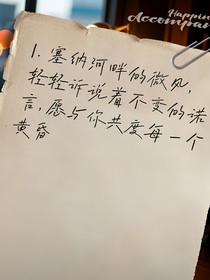 Happine
Accompan
1. 塞纳河畔的微风,
轻轻诉说着不变的诺
言,愿与你共度每一个
黄昏